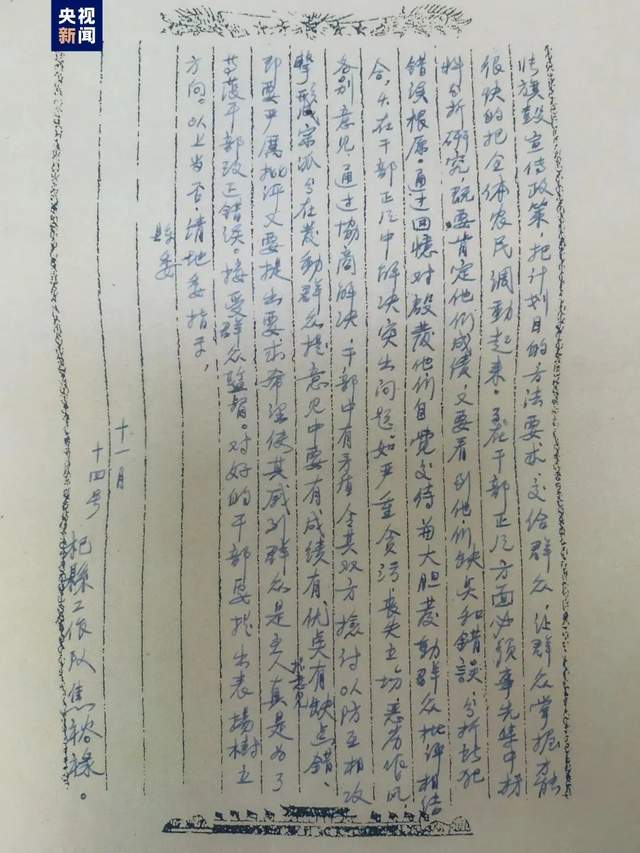 央视
新闻
张旗鼓宣传政策，把计划目的方法要求，交给群众，让群众掌握才能
很快的把全体农民调动起来。在干部正风方面必须事先集中材
料分析研究既要肯定他们成绩，又要看到他们缺点和错误，分析其犯
错误根原。通过回憶对啟发他们自觉交待並大胆发動群众批评相结
合，在干部正风中解决突出问题如严重贪污，丧失立场，恶劣作风
各别意见，通过協商解决，干部中有矛盾，令其双方检讨以防互相攻
擊形成宗派。在发動群众提意见中要有成绩，有优点有缺点错，提意见
即要严厲批评又要提出要求希望使其感到群众是主人真是为了
等護干部改正错误，接受群众监督。对好的干部要提出表揚樹立
方向。以上当否请地委指示，
縣委
十一月
十四号
杞縣工作队焦裕禄。